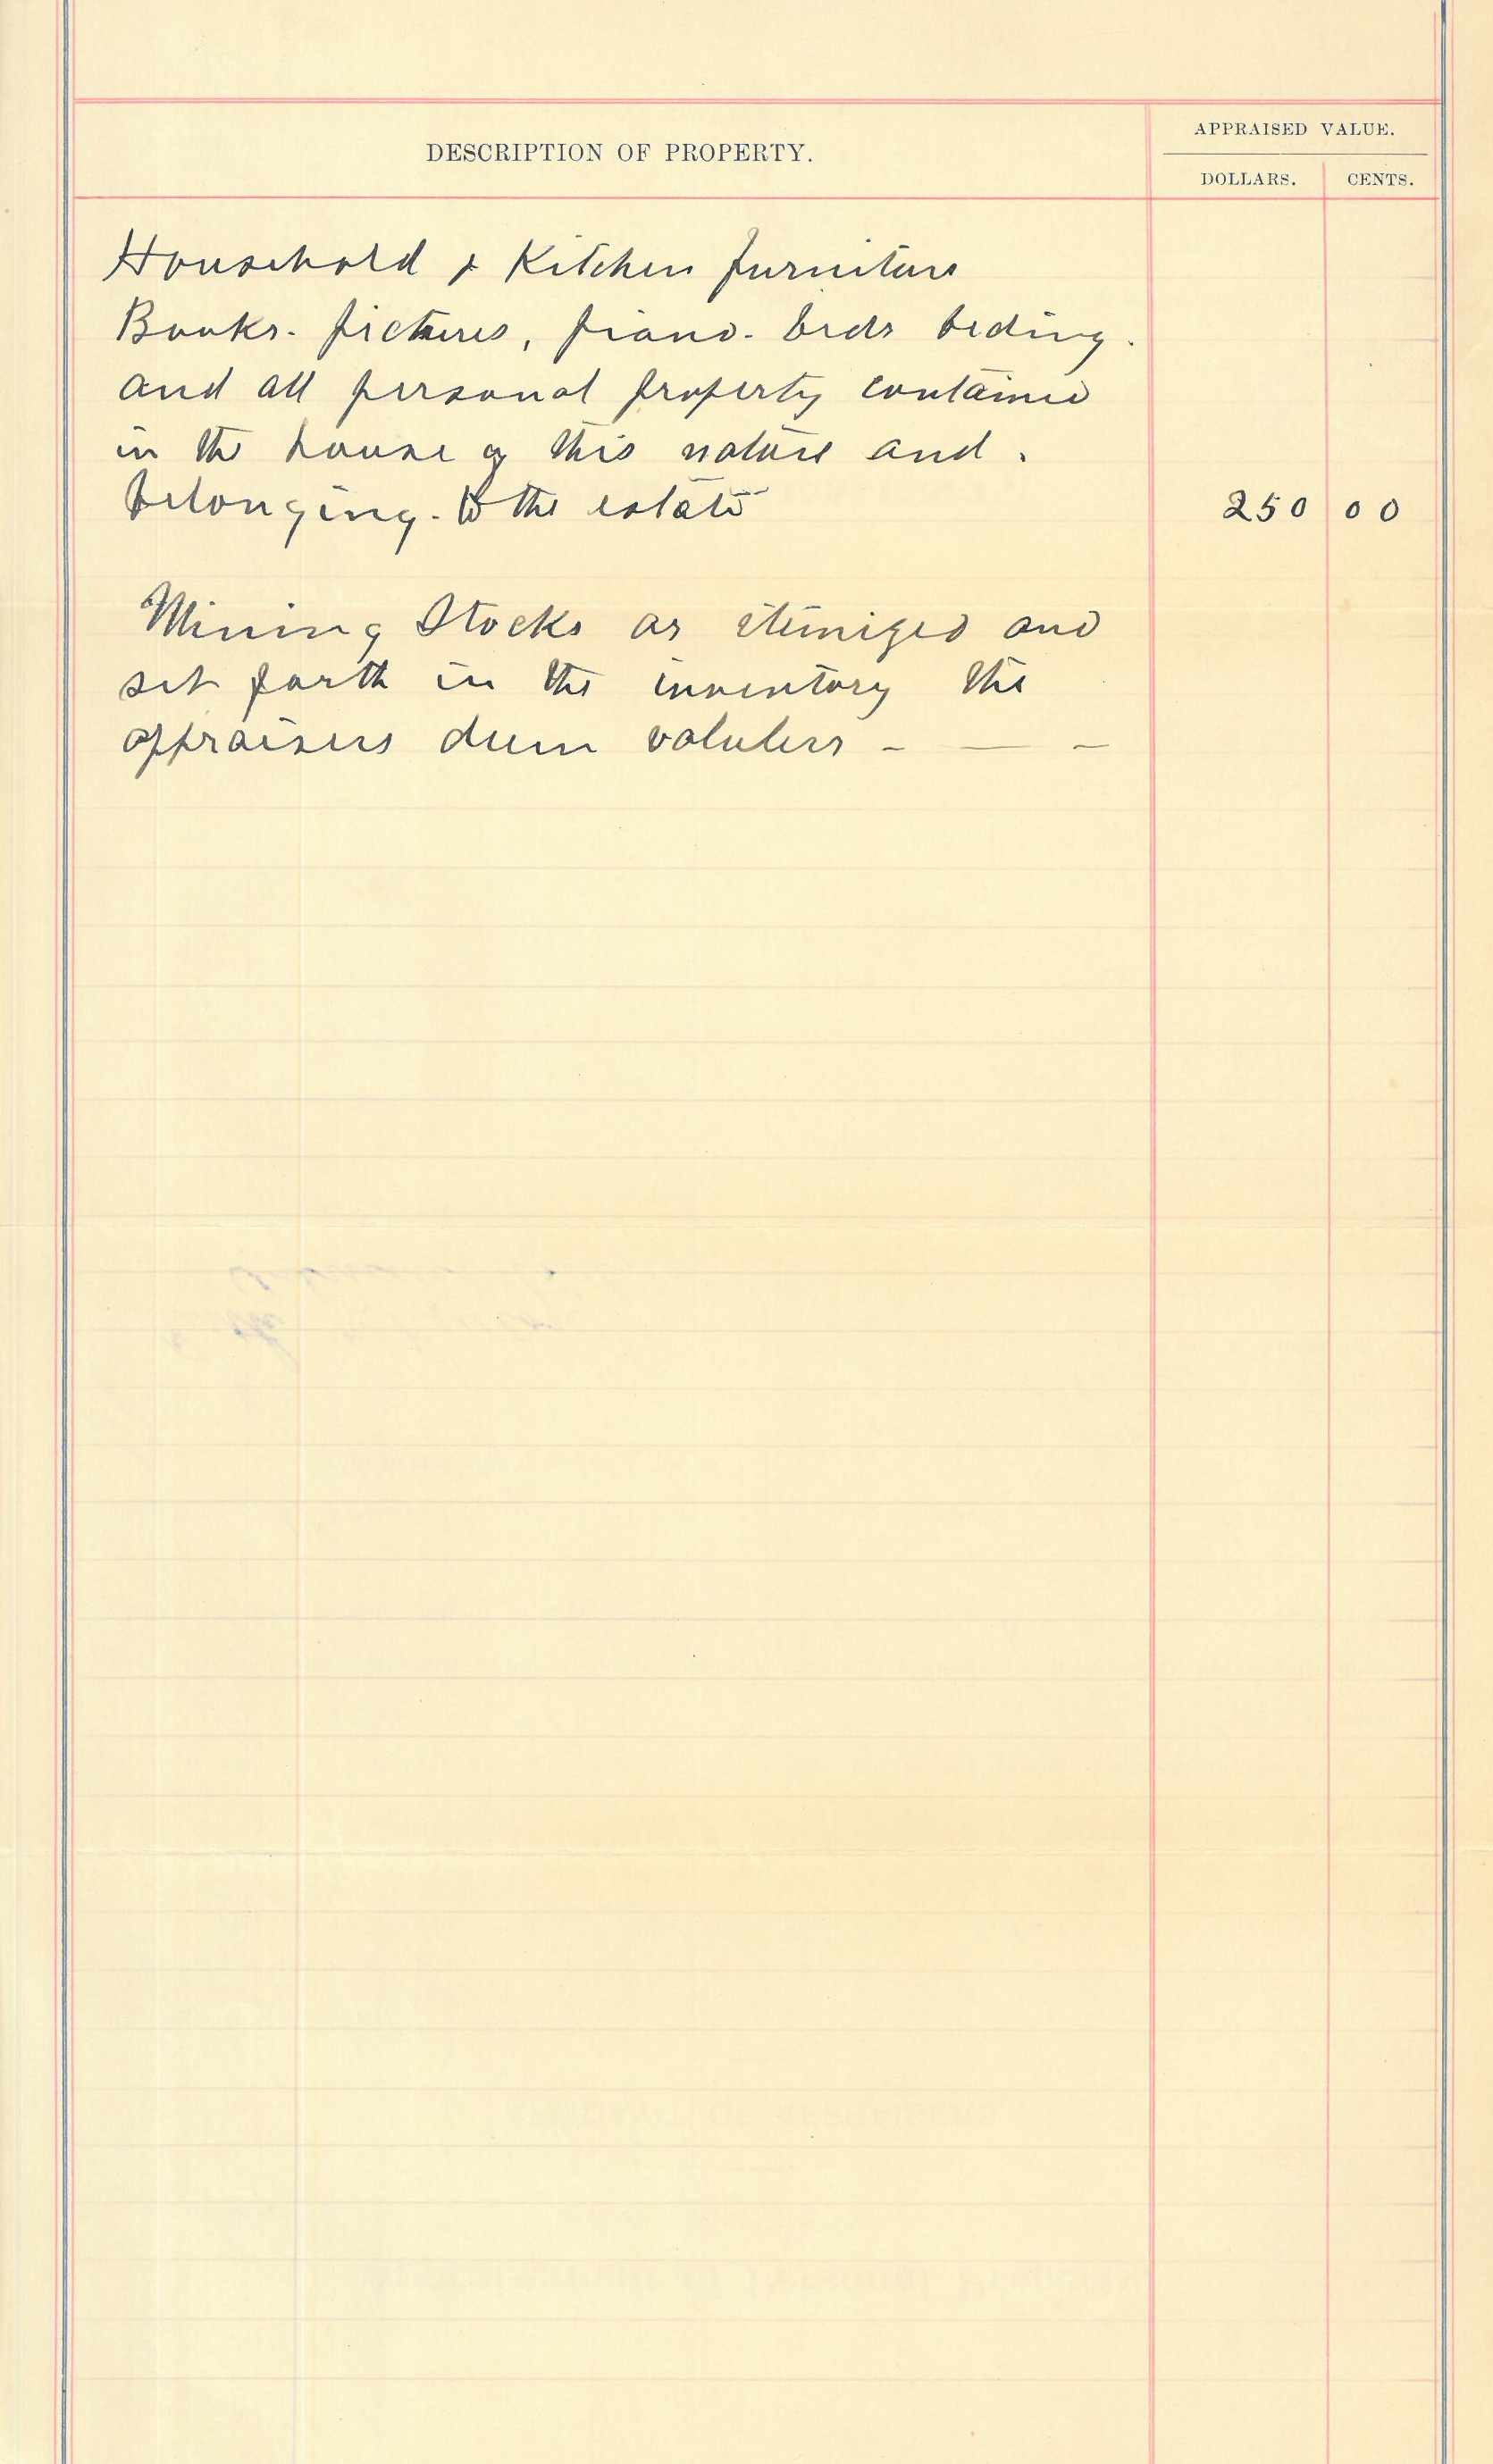 DESCRIPTION OF PROPERTY.
APPRAISED VALUE.
DOLLARS. CENTS.
Household & Kitchen furniture
Books. pictures, piano. beds beding.
and all personal property contained
in the house of this nature and.
belonging. to the estate 250 00
Mining Stocks as itemized and
set forth in the inventory the
appraisers deem valuless - — -